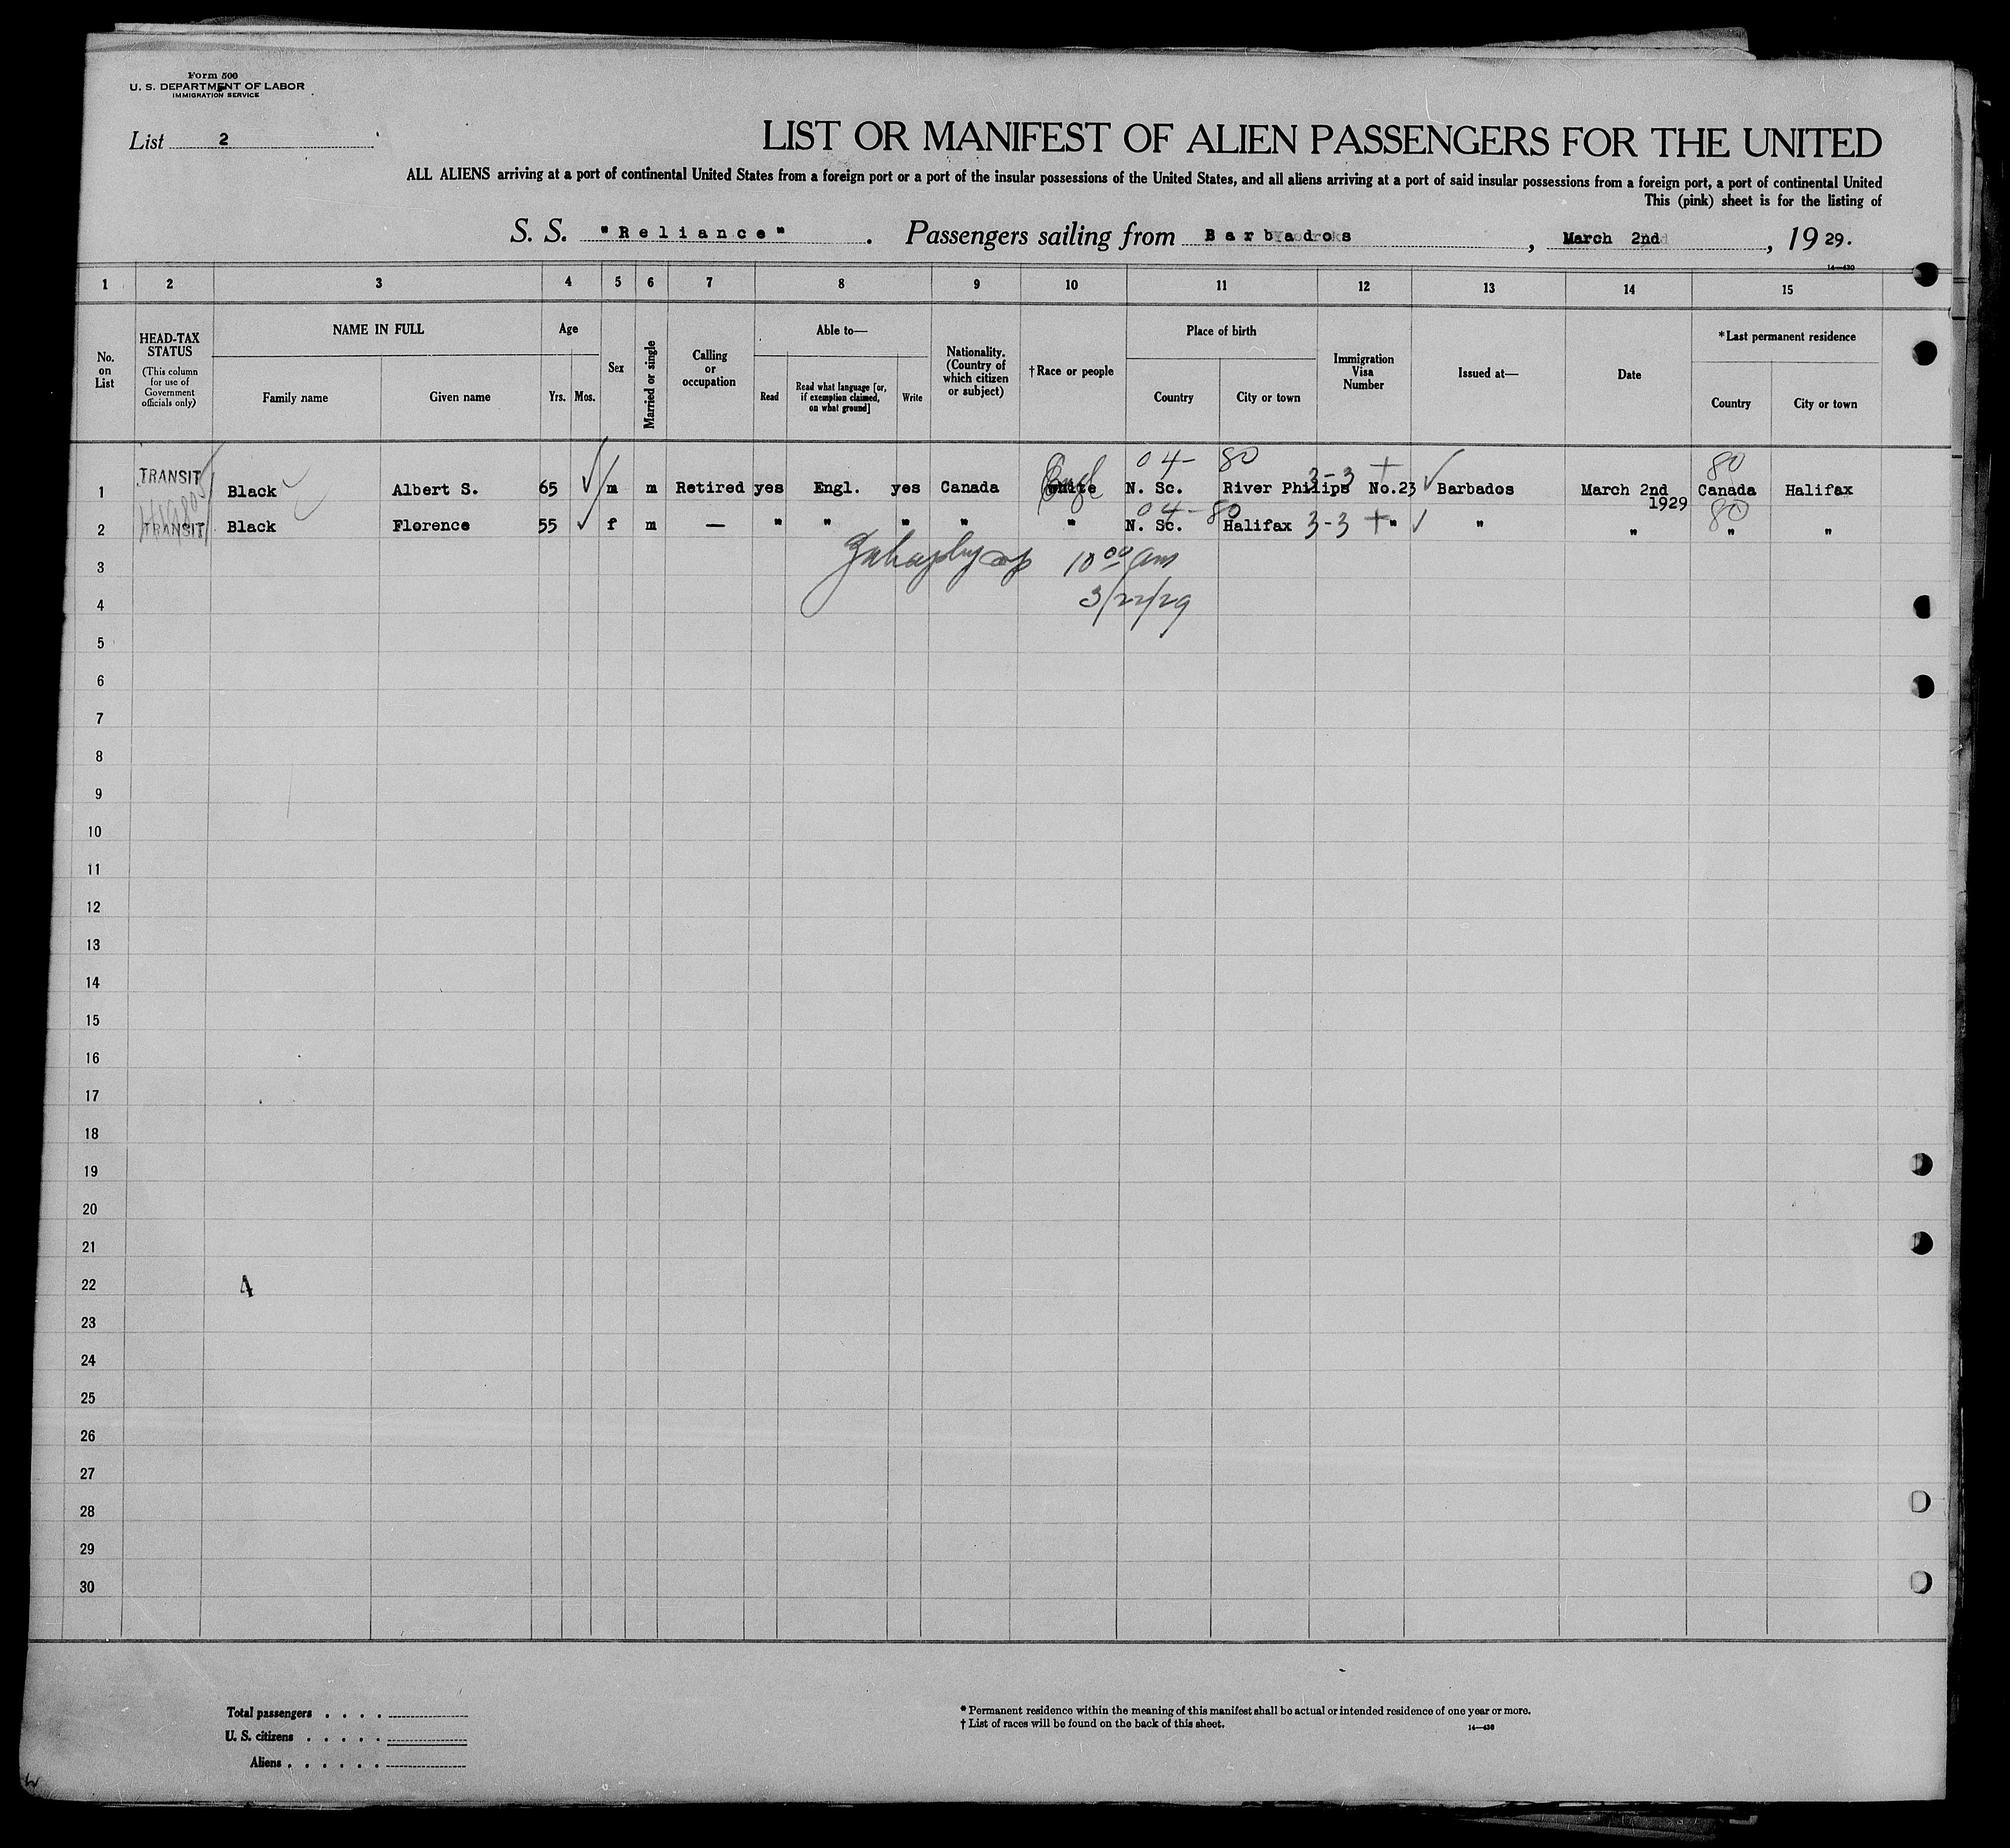 Form 500
U. S. DEPARTMENT OF LABOR
IMMIGRATION SERVICE
List 2
LIST OR MANIFEST OF ALIEN PASSENGERS FOR THE UNITED
ALL ALIENS arriving at a port of continental United States from a foreign port or a port of the insular possessions of the United States, and all aliens arriving at a port of said insular possessions from a foreign port, a port of continental United
This (pink) sheet is for the listing of
S. S. "Reliance" . Passengers sailing from Barbados , March 2nd , 19 29.
14—430
1 2 3 4 5 6 7 8 9 10 11 12 13 14 15
No. on List
HEAD-TAX STATUS
(This column for use of Government officials only)
NAME IN FULL
Family name Given name
Age
Yrs. Mos.
Sex
Married or single
Calling or occupation
Able to—
Read
Read what language [or, if exemption claimed, on what ground]
Write
Nationality. (Country of which citizen or subject)
†Race or people
Place of birth
Country City or town
Immigration Visa Number
Issued at—
Date
*Last permanent residence
Country City or town
04- 80 3-3 + 80
1 TRANSIT Black Albert S. 65 m m Retired yes Engl. yes Canada White Engl N. Sc. River Philips No.23 Barbados March 2nd 1929 Canada Halifax
04-80 80
2 TRANSIT Black Florence 55 f m — " " " " " N. Sc. Halifax 3-3 + " " " " "
3 10 00 am
4 3/22/29
5
6
7
8
9
10
11
12
13
14
15
16
17
18
19
20
21
22 4
23
24
25
26
27
28
29
30
Total passengers . . . .
U. S. citizens . . . . .
Aliens . . . . . .
* Permanent residence within the meaning of this manifest shall be actual or intended residence of one year or more.
† List of races will be found on the back of this sheet.
14—430